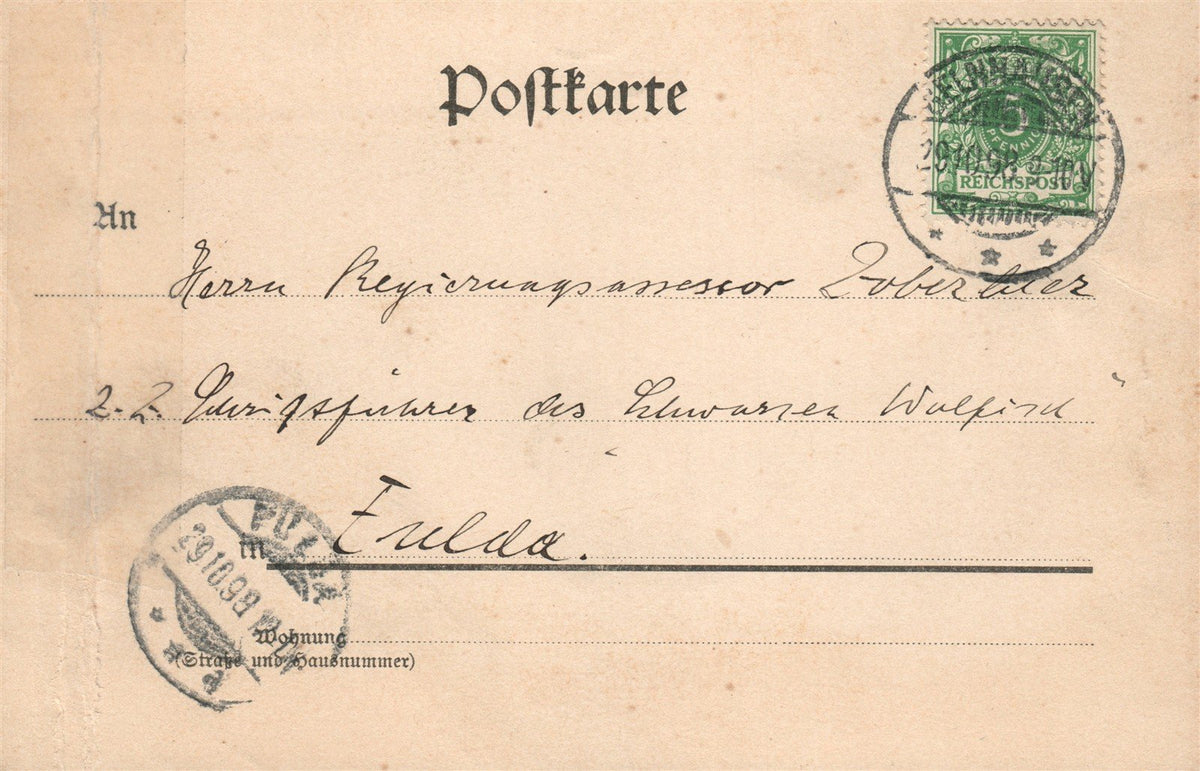 Postkarte
GELNHAUSEN
5
PFENNIG
29.10.98. 9-10V
REICHSPOST
An
Herrn Regierungsassessor
z. Z. des Schwarzen Walfisch
FULDA
29.10.98
in Fulda.
Wohnung
(Straße und Hausnummer)